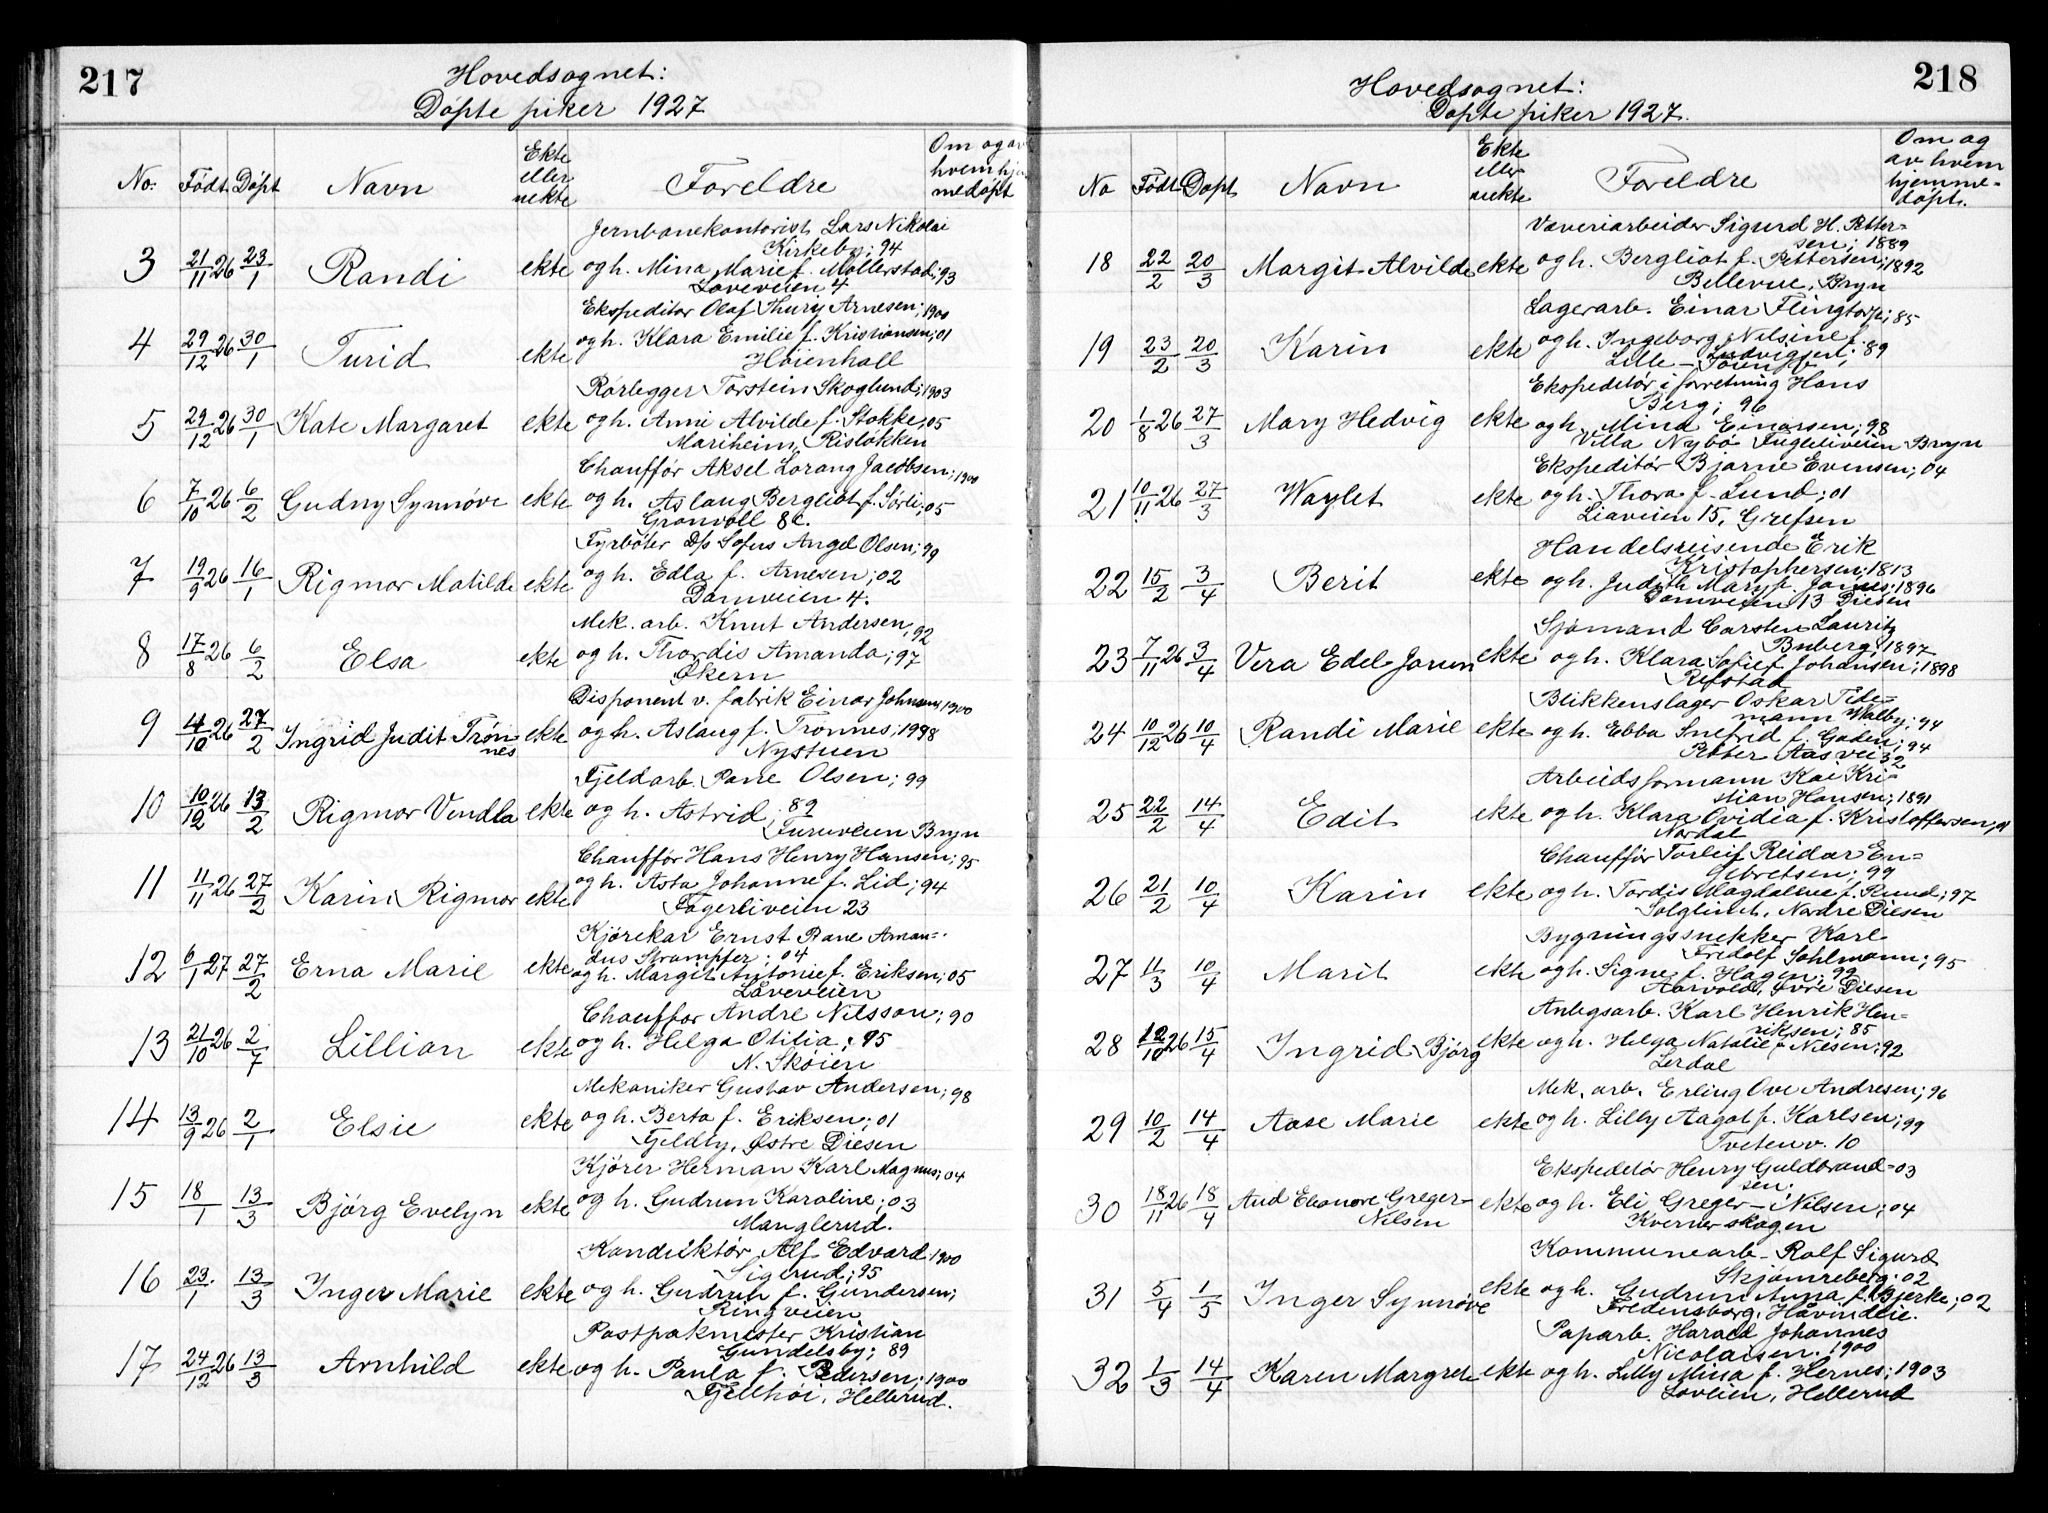 217
Hovedsognet:
Døpte piker 1927
No: Født Døpt Navn Ekte eller uekte Foreldre Om og av hvem hjemmedøpt
Jernbanekontorist Lars Nikolai
Kirkeby; 94
3 21/11 26 23/1 Randi ekte og h. Mina Marie f. Møllerstad; 93
Løveveien 4
Ekspeditør Olaf Thury Arnesen; 1900
4 29/12 26 30/1 Turid ekte og h. Klara Emilie f. Kristiansen; 01
Høienhall
Rørlegger Torstein Skoglund; 1903
5 29/12 26 30/1 Kate Margaret ekte og h. Anni Alvilde f. Stokke, 05
Mariheim, Risløkken
Chauffør Aksel Lorang Jacobsen; 1900
6 7/10 26 6/2 Gudny Synnøve ekte og h. Aslaug Bergliot f. Sørli; 05
Grønvoll 8c.
Fyrbøter D/s Sofus Angel Olsen; 99
7 19/9 26 16/1 Rigmor Matilde ekte og h. Edla f. Arnesen; 02
Damveien 4.
Mek. arb. Knut Andersen, 92
8 17/8 26 6/2 Elsa ekte og h. Thordis Amanda; 97
Økern
Disponent v. fabrik Einar Johnsen; 1900
9 4/10 26 27/2 Ingrid Judit Trønnes ekte og h. Aslaug f. Trønnes; 1998
Nystuen
Fjeldarb. Pane Olsen; 99
10 10/12 26 13/2 Rigmor Vendla ekte og h. Astrid; 89
Furuveien Bryn
Chauffør Hans Henry Hansen; 95
11 11/11 26 27/2 Karin Rigmor ekte og h. Asta Johanne f. Lid; 94
Fagerliveien 23
Kjørekar Ernst Rane Aman=
dus Strømpfer; 04
12 6/1 27 27/2 Erna Marie ekte og h. Margit Antonie f. Eriksen; 05
Låveveien
Chauffør André Nilsson; 90
13 21/10 26 2/7 Lillian ekte og h. Helga Otilia; 95
N. Skøien
Mekaniker Gustav Andersen; 98
14 13/9 26 2/1 Elsie ekte og h. Berta f. Eriksen; 01
Fjeldly, Østre Diesen
Kjører Herman Karl Magnus; 04
15 18/1 13/3 Bjørg Evelyn ekte og h. Gudrun Karoline; 03
Manglerud.
Konduktør Alf Edvard 1900
Sigerud; 95
16 23/1 13/3 Inger Marie ekte og h. Gudrun f. Gundersen;
Ringveien
Postpakmester Kristian
Gundelsby; 89
17 24/12 26 13/3 Arnhild ekte og h. Paula f. Pedersen; 1900
Fjellhøi, Hellerud.
218
Hovedsognet:
Døpte piker 1927.
No Født Døpt Navn Ekte eller uekte Foreldre Om og av hvem hjemme=døpt.
Væveriarbeider Sigurd H. Petter=
sen; 1889
18 22/2 20/3 Margit Alvilde ekte og h. Bergliot f. Pettersen; 1892
Bellevue, Bryn
Lagerarb. Einar Flingtorp; 85
19 23/2 20/3 Karin ekte og h. Ingeborg Nilsine f.
Ludvigsen; 89
Lille-
Ekspeditør i forretning Hans
Berg; 96
20 1/8 26 27/3 Mary Hedvig ekte og h. Mina Einarsen; 98
Villa Nybo Fugleliveien Bryn
Ekspeditør Bjarne Evensen; 04
21 10/11 26 27/3 Waylet ekte og h. Thora f. Lund; 01
Liaveien 15, Grefsen
Handelsreisende Erik
Kristophersen; 1813
22 15/2 3/4 Berit ekte og h. Judith Mary f. James; 1896
Damveien 13 Diesen
Sjømand Carsten Lauritz
Buberg; 1897
23 7/11 26 3/4 Vera Edel Jorun ekte og h. Klara Sofie f. Johansen; 1898
Refstad
Blikkenslager Oskar Tide=
mann Walby; 94
24 10/12 26 10/4 Randi Marie ekte og h. Ebba Snefrid f. Gaden; 94
Petter Aas vei 32
Arbeidsformann Kai Kri=
stian Hansen; 1891
25 22/2 14/4 Edit ekte og h. Klara Ovidia f. Kristoffersen; 01
Nordal
Chauffør Torleif Reidar En=
gebretsen; 99
26 21/2 10/4 Karin ekte og h. Tordis Magdalene f. Rund; 97
Solglimt, Nordre Diesen
Bygningssnekker Karl
Fredolf Sahlmann; 95
27 11/3 10/4 Marit ekte og h. Signe f. Hagen; 99
Aarvold, Øvre Diesen
Anlegsarb. Karl Henrik Hen=
riksen; 85
28 12/10 26 15/4 Ingrid Bjørg ekte og h. Helga Natalie f. Nilsen; 92
Lerdal
Mek. arb. Erling Ove Andresen; 96
29 10/2 14/4 Aase Marie ekte og h. Lilly Aagot f. Karlsen; 99
Tvetenv. 10
Ekspeditør Henry Guldbrand= 03
sen;
30 18/11 26 18/4 Aud Eleonore Greger-Nilsen ekte og h. Eli Greger-Nilsen; 04
Kvernerskogen
Kommunearb. Rolf Sigurd
Skjømreberg; 02
31 5/4 1/5 Inger Synnøve ekte og h. Gudrun Anna f. Bjerke; 02
Fredensborg, Håvindlie.
Paparb. Harald Johannes
Nicolaisen. 1900
32 1/3 14/4 Karen Margrete ekte og h. Lilly Mina f. Hernes; 1903
Loveien, Hellerud